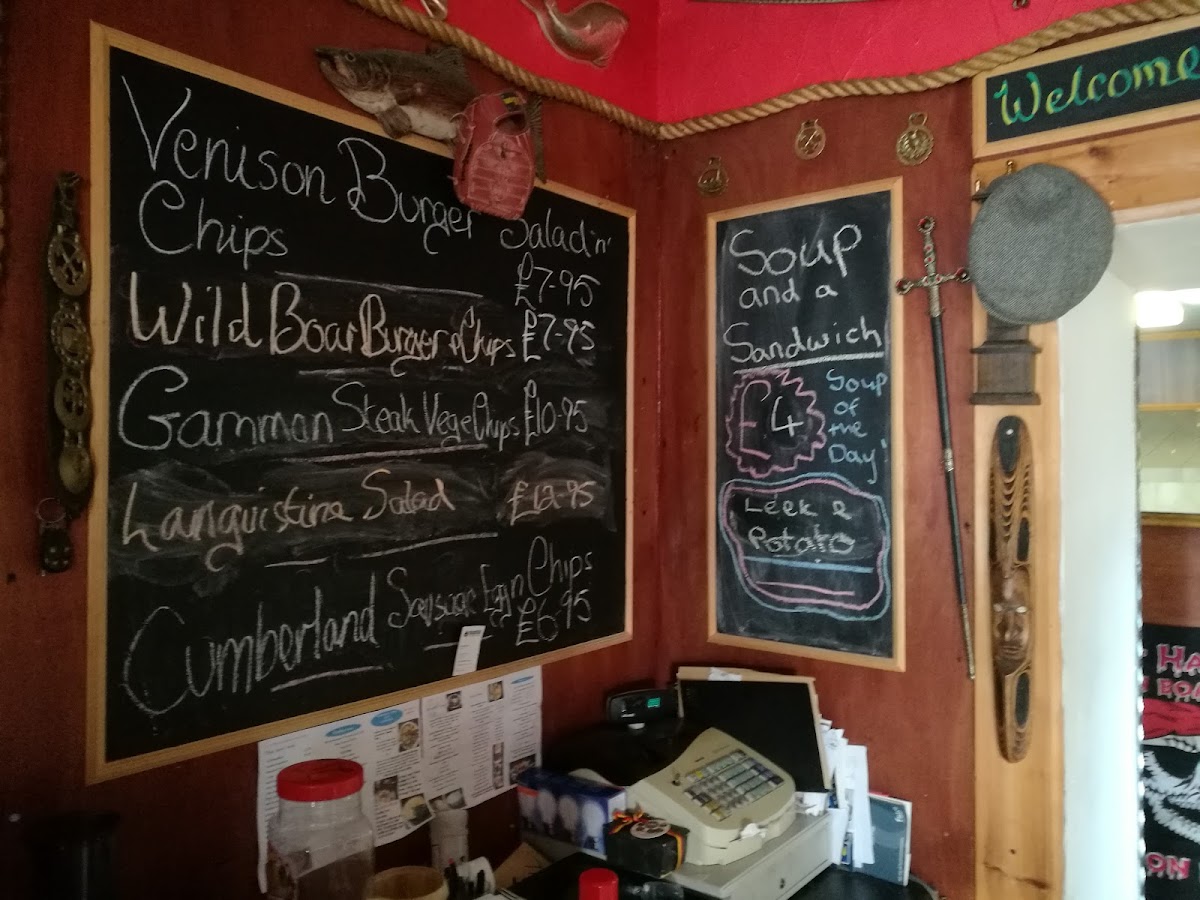 Venison Burger Salad 'n'
Chips
£7-95
Wild Boar Burger & Chips £7-95
Gammon Steak Vege Chips £10-95
Languistine Salad £12-95
Cumberland Sausage Egg n Chips
£6-95
Soup
and a
Sandwich
£4
Soup
of
the
Day
Leek &
Potato
Welcome
HA
BOA
ON